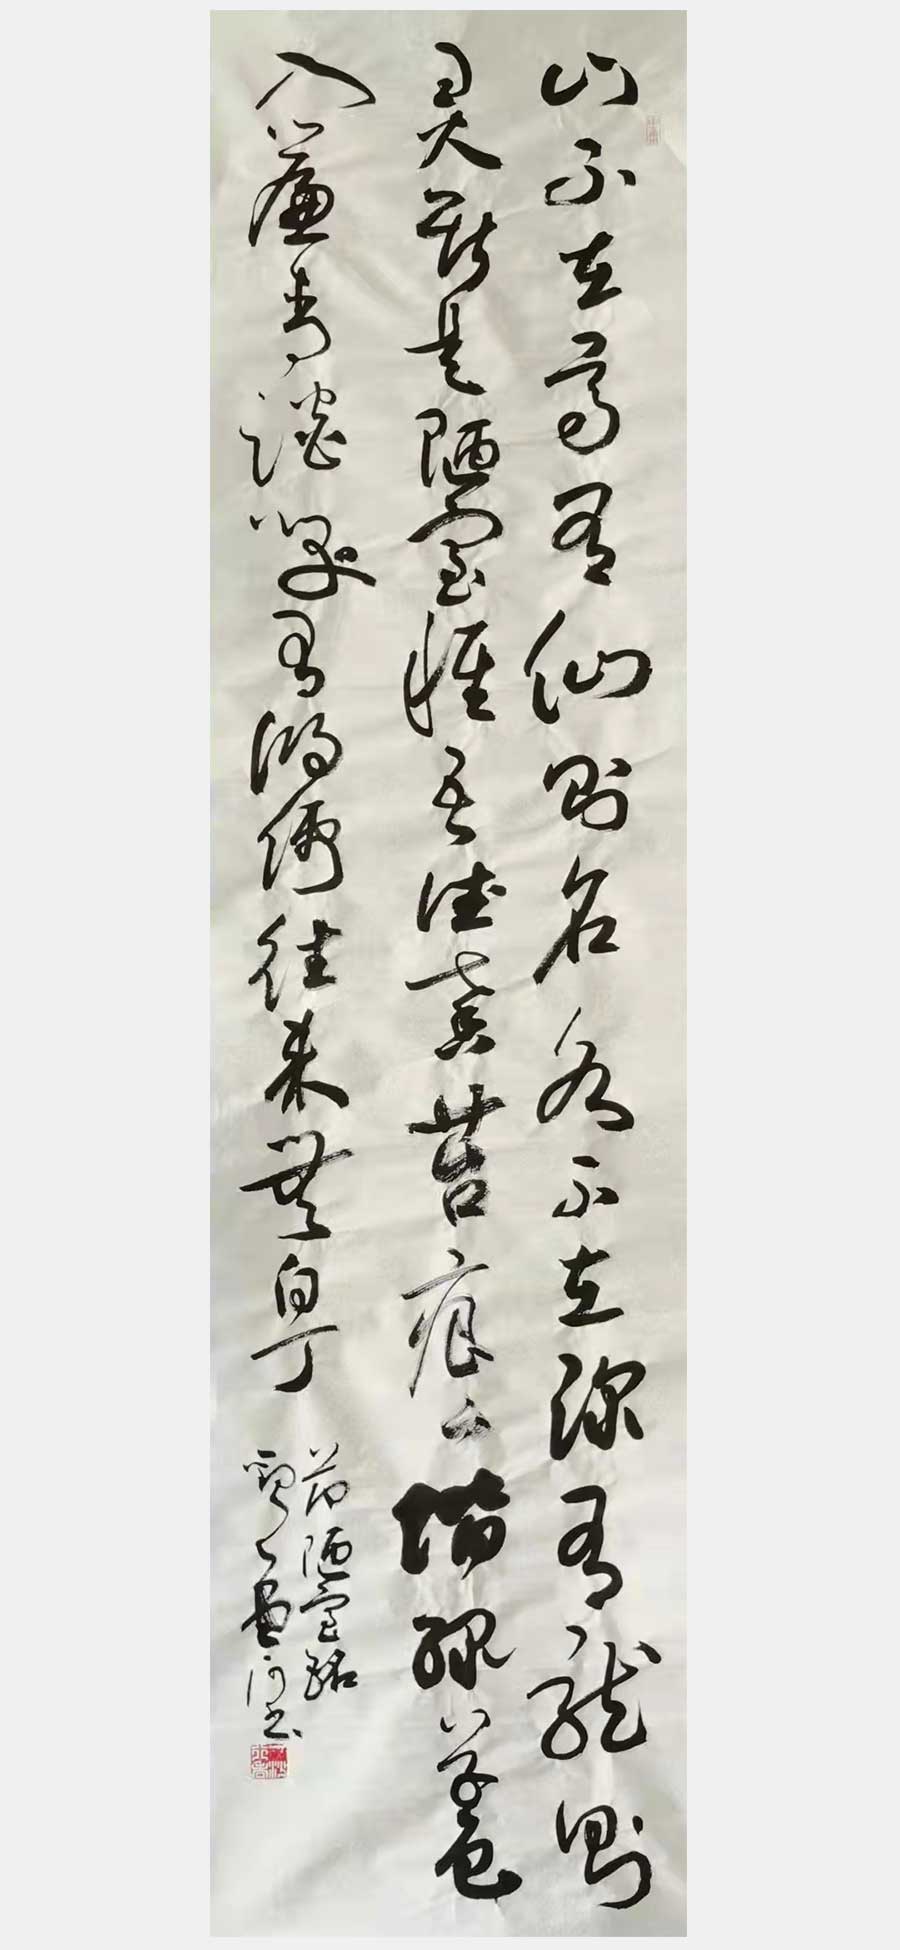 山不在高有仙则名水不在深有龙则
灵斯是陋室惟吾德馨苔痕上阶绿草色
入帘青谈笑有鸿儒往来无白丁
节陋室铭
书